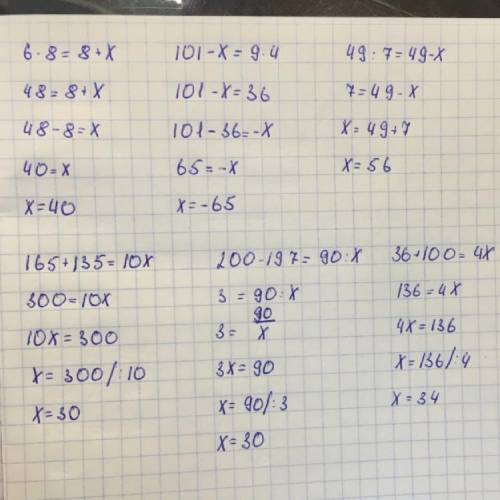 6·8=8+x
48=8+x
48-8=x
40=x
x=40
101-x=9·4
101-x=36
101-36=-x
65=-x
x=-65
49:7=49-x
7=49-x
x=49+7
x=56
165+135=10x
300=10x
10x=300
x=300/:10
x=30
200-197=90:x
3=90:x
3=90/x
3x=90
x=90/:3
x=30
36+100=4x
136=4x
4x=136
x=136/:4
x=34